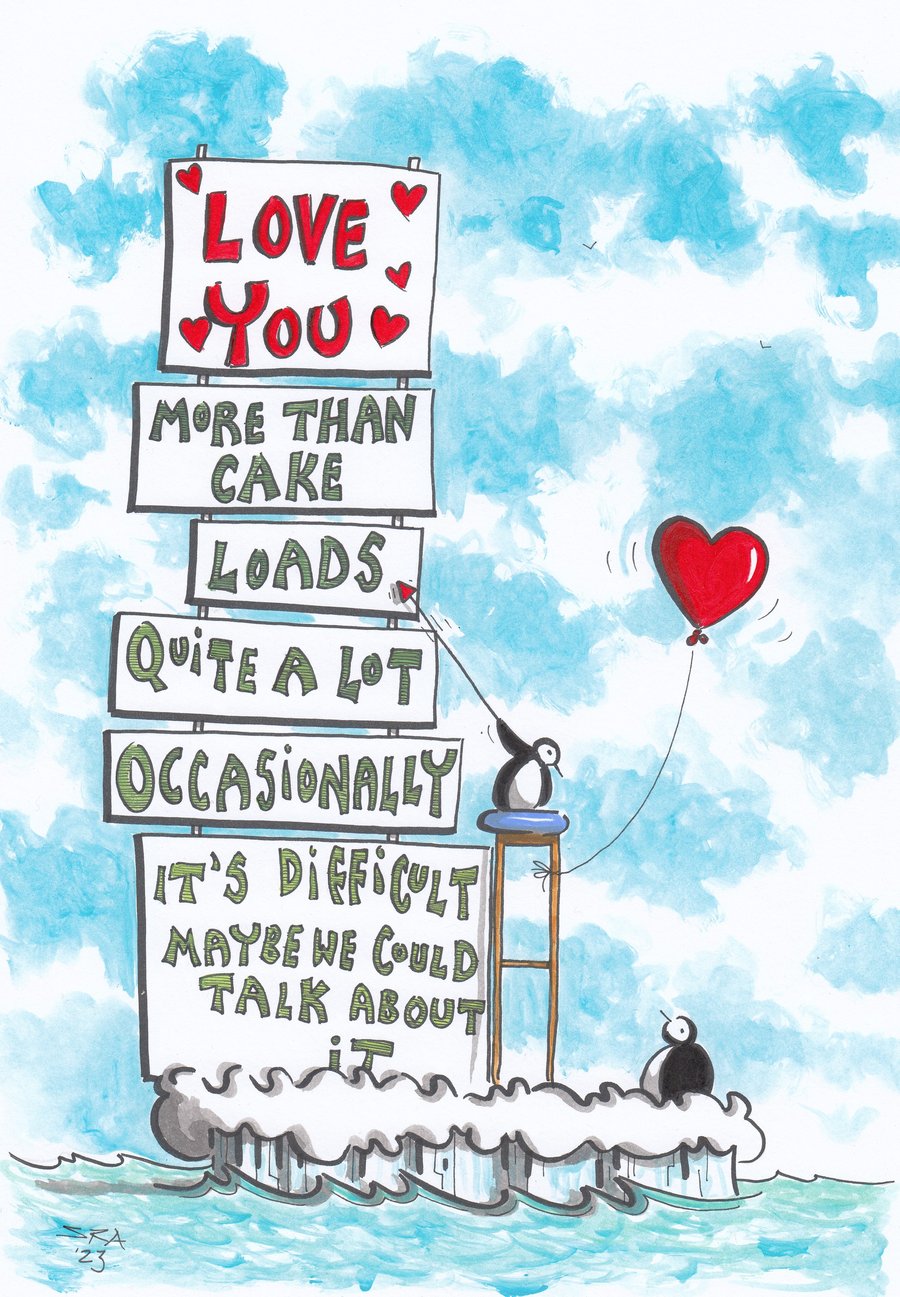 LOVE
YOU
MORE THAN
CAKE
LOADS
QUiTE A LOT
OCCASiONALLY
iT'S DiFFiCULT
MAYBE WE COULD
TALK ABOUT
iT
SRA
'23